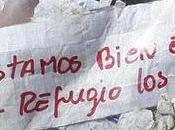 ESTAMOS BIEN E
EL REFUGIO LOS